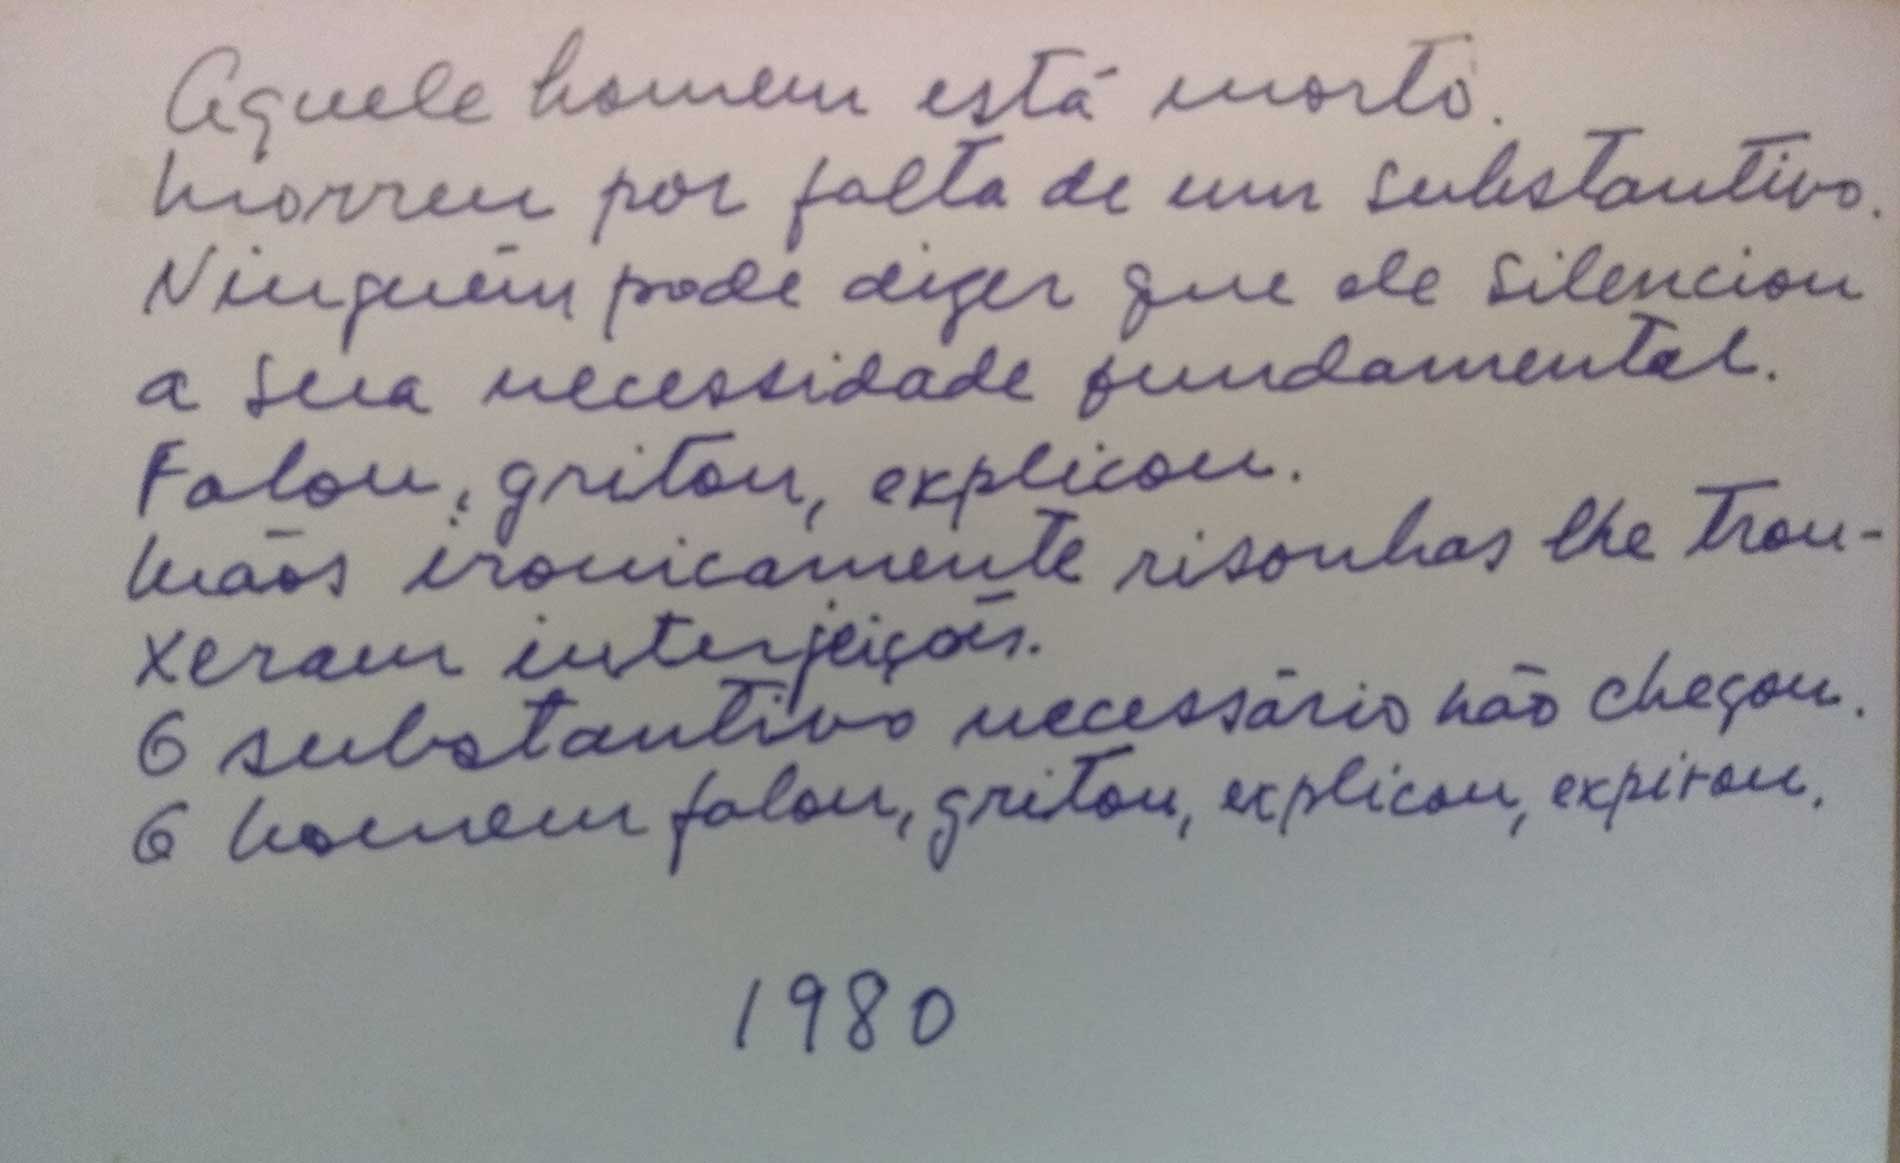 Aquele homem está morto.
Morreu por falta de um substantivo.
Ninguém pode dizer que ele silenciou
a sua necessidade fundamental.
Falou, gritou, explicou.
Mãos ironicamente risonhas lhe trou-
xeram interjeições.
O substantivo necessário não chegou.
O homem falou, gritou, explicou, expirou.
1980